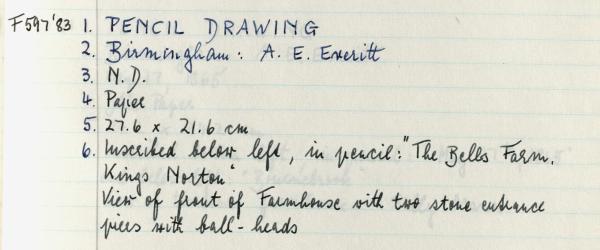 F597'83 1. PENCIL DRAWING
2. Birmingham: A. E. Everitt
3. N.D.
4. Paper
5. 27.6 x 21.6 cm
6. Inscribed below left, in pencil: "The Bells Farm,
Kings Norton"
View of front of Farmhouse with two stone entrance
piers with ball-heads